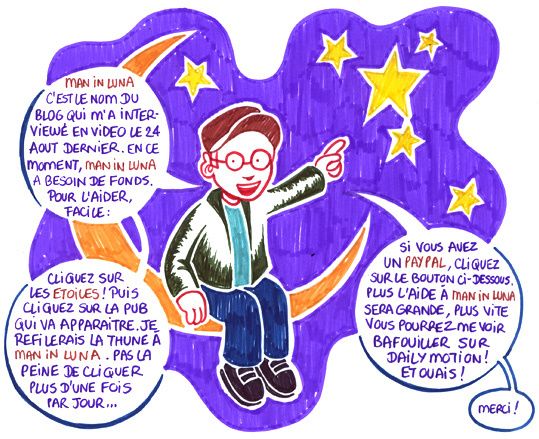 MAN IN LUNA
C'EST LE NOM DU
BLOG QUI M'A INTER-
VIEWÉ EN VIDEO LE 24
AOUT DERNIER. EN CE
MOMENT, MAN IN LUNA
A BESOIN DE FONDS.
POUR L'AIDER,
FACILE:
CLIQUEZ SUR
LES ETOILES! PUIS
CLIQUEZ SUR LA PUB
QUI VA APPARAITRE. JE
REFILERAIS LA THUNE À
MAN IN LUNA. PAS LA
PEINE DE CLIQUER
PLUS D'UNE FOIS
PAR JOUR...
SI VOUS AVEZ
UN PAYPAL, CLIQUEZ
SUR LE BOUTON CI-DESSOUS.
PLUS L'AIDE À MAN IN LUNA
SERA GRANDE, PLUS VITE
VOUS POURREZ ME VOIR
BAFOUILLER SUR
DAILY MOTION!
ET OUAIS!
MERCI!